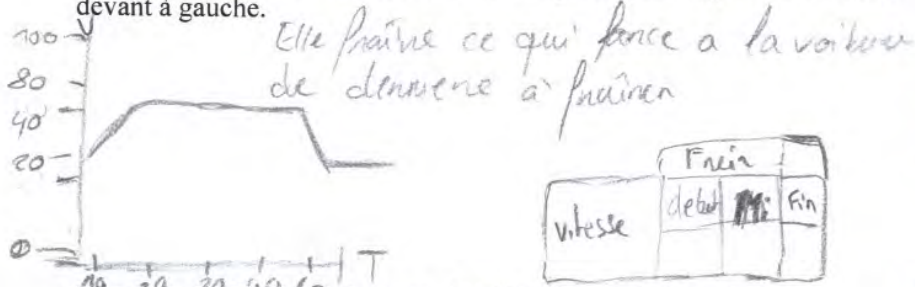 devant à gauche.
Elle fraîne ce qui force a la voiture
de derriere à fraîner
V
100
80
40
20
0
10 20 30 40 60 T
Frein
vitesse debut Mi Fin